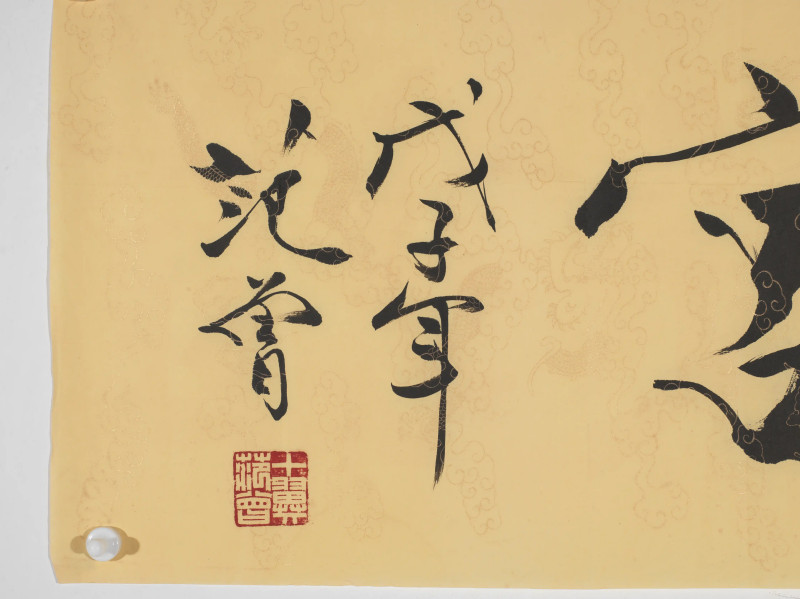 戊子年
范曾
十翼
范曾